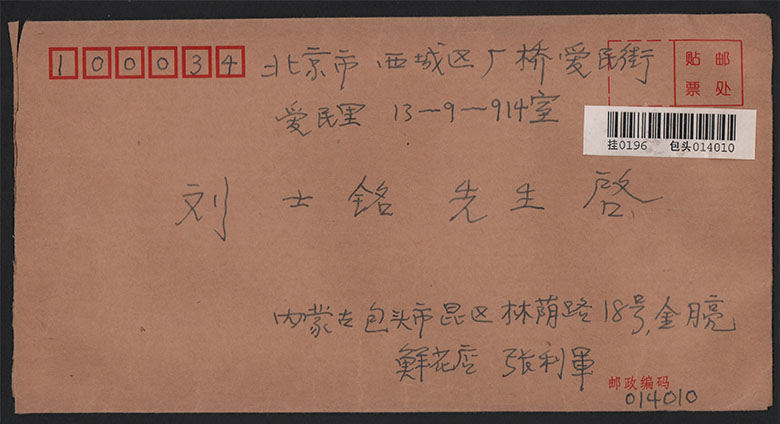 100034 北京市西城区厂桥爱民街
爱民里 13-9-914室
贴 邮
票 处
挂0196 包头014010
刘士铭 先生 启
内蒙古包头市昆区林荫路18号,金月亮
鲜花店 张利军
邮政编码
014010